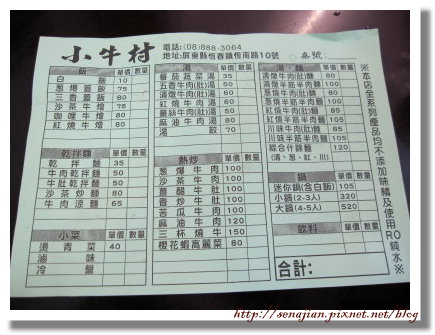 小牛村
電話:(08)888-3064
地址:屏東縣恆春鎮恆南路10號
桌號:
飯 單價 數量
白飯 10
蔥爆蓋飯 75
三香蓋飯 80
沙茶牛燴 80
咖哩牛燴 80
紅燒牛燴 80
乾拌麵 單價 數量
乾拌麵 35
牛肉乾拌麵 50
牛肚乾拌麵 50
沙茶炒麵 80
牛肉涼麵 65
小菜 單價 數量
燙青菜 40
滷味
冷盤
湯 單價 數量
蕃茄蔬菜湯 35
五香牛肉(肚)湯 50
清燉牛肉(肚)湯 60
紅燒牛肉湯 60
薑絲牛肉(肚)湯 60
麻油牛肉湯 80
湯餃 70
熱炒 單價 數量
蔥爆牛肉 100
沙茶牛肉 100
薑醋牛肚 100
香炒牛肚 100
苦瓜牛肉 100
麻油牛肉 100
三杯燒牛 150
櫻花蝦高麗菜 80
湯麵 單價 數量
清燉牛肉(肚)麵 80
清燉半筋半肉麵 100
蔥燒牛肉(肚)麵 80
蔥燒半筋半肉麵 100
紅燒牛肉(肚)麵 80
紅燒半筋半肉麵 100
川味牛肉(肚)麵 80
川味半筋半肉麵 100
綜合什錦麵 120
(清、蔥、紅、川)
鍋 單價 數量
迷你鍋(含白飯) 105
小鍋(2-3人) 320
大鍋(4-5人) 520
飲料 單價 數量
合計:
※本店全系列產品均不添加味精及使用RO純水※
http://senajian.pixnet.net/blog